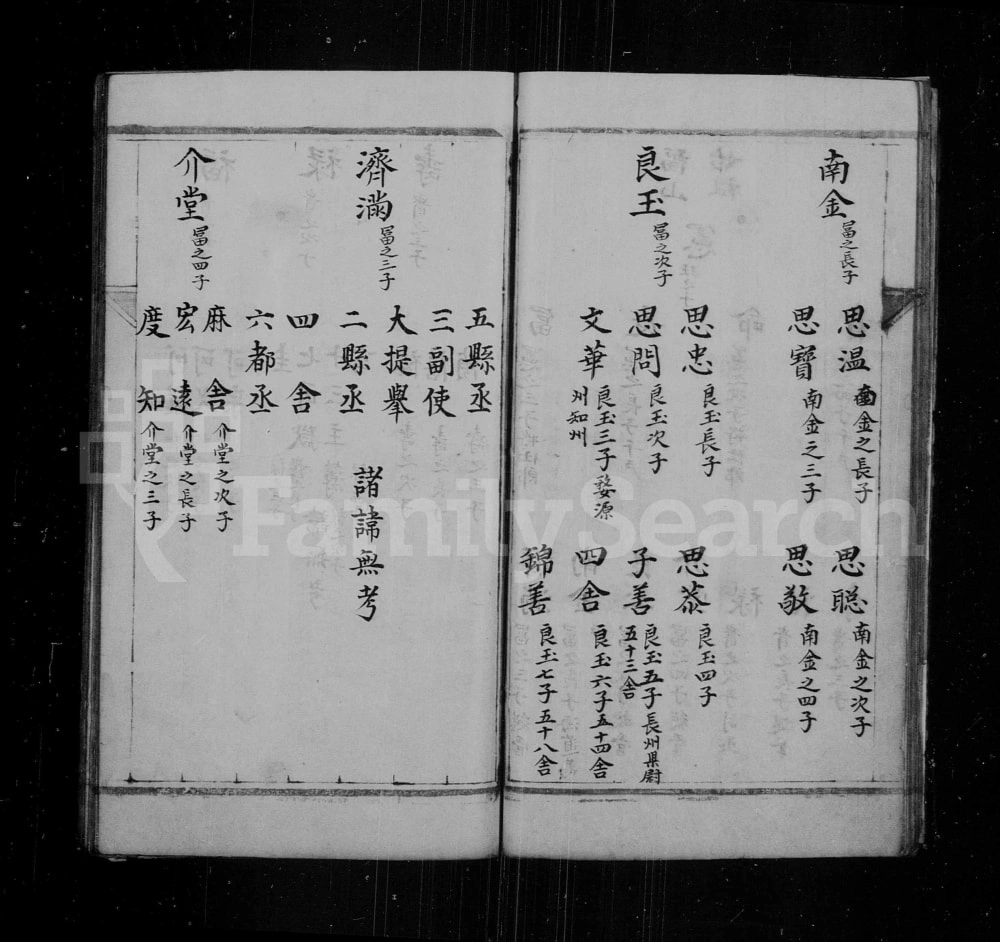 南金 冨之長子
思温 南金之長子
思聡 南金之次子
思寶 南金之三子
思敬 南金之四子
良玉 冨之次子
思忠 良玉長子
思恭 良玉四子
思問 良玉次子
子善 良玉五子長州果尉五十三舍
文華 良玉三子婺源州知州
四舍 良玉六子五十四舍
錦善 良玉七子五十八舍
濟 冨之三子
五縣丞
三副使
大提擧
二縣丞
四舍
六都丞
諸諱無考
介堂 冨之四子
麻舍 介堂之次子
宏遠 介堂之長子
度知 介堂之三子
FamilySearch